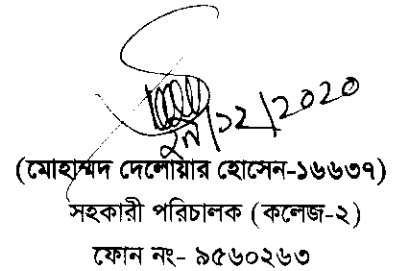 ২৭/১২/২০২০
(মোহাম্মদ দেলোয়ার হোসেন-১৬৬৩৭)
সহকারী পরিচালক (কলেজ-২)
ফোন নং- ৯৫৬০২৬৩